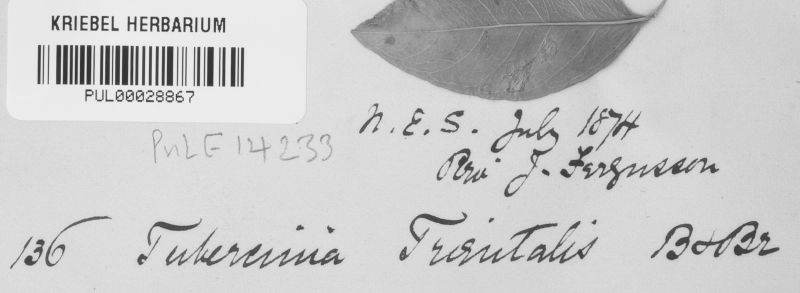 KRIEBEL HERBARIUM
PUL00028867
PuL F 14233
N. E. S. July 1874
Rev. J. Fergusson
136 Tubercinia Trientalis B&Br